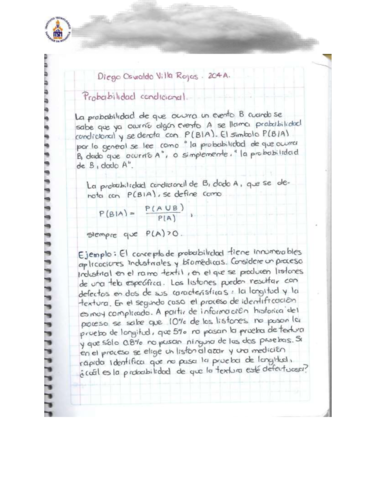 Diego Oswaldo Villa Rojas. 204A.
Probabilidad condicional.
La probabilidad de que ocurra un evento B cuando se
sabe que ya ocurrió algún evento A se llama probabilidad
condicional y se denota con P(B|A). El símbolo P(B|A)
por lo general se lee como "la probabilidad de que ocurra
B, dado que ocurrió A", o simplemente, "la probabilidad
de B, dado A".
La probabilidad condicional de B, dado A, que se de-
nota con P(B|A), se define como
P(B|A) = P(A∪B) / P(A) ,
siempre que P(A)>0.
Ejemplo: El concepto de probabilidad tiene innumerables
aplicaciones industriales y biomédicas. Considere un proceso
industrial en el ramo textil, en el que se producen listones
de una tela específica. Los listones pueden resultar con
defectos en dos de sus características: la longitud y la
textura. En el segundo caso el proceso de identificación
es muy complicado. A partir de información histórica del
proceso se sabe que 10% de los listones no pasan la
prueba de longitud, que 5% no pasan la prueba de textura
y que sólo 0.8% no pasan ninguna de las dos pruebas. Si
en el proceso se elige un listón al azar y una medición
rápida identifica que no pasa la prueba de longitud,
¿cuál es la probabilidad de que la textura esté defectuosa?